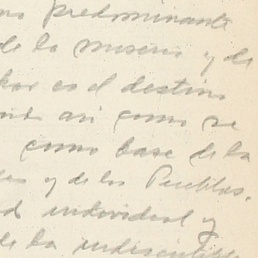 predominante
de la miseria y de
es el destino
así como se
como base de la
y de los Pueblos.
individual y
de la indiscutible